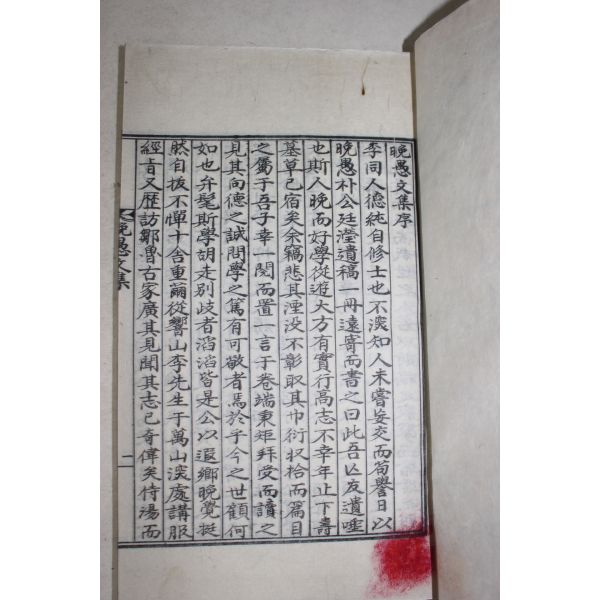 晩愚文集序
李同人德純自修士也不深知人未嘗妄交而苟譽日以
晩愚朴公廷瀅遺稿一冊遠寄而書之曰此吾亡友遺唾
也斯人晩而好學從遊大方有實行高志不幸年止下壽
墓草已宿矣余竊悲其湮沒不彰取其巾衍収拾而爲目
之寫于吾子幸一閱而置一言于卷端秉矩拜受而讀之
見其向德之誠問學之篤有可敬者焉於乎今之世顧何
如也弁髦斯學胡走別歧者滔滔皆是公以遐鄕晩覺挺
然自拔不憚十舍重繭從響山李先生于萬山深處講服
經旨又歷訪鄒魯古家廣其見聞其志已奇偉矣侍湯而
晩愚文集
一